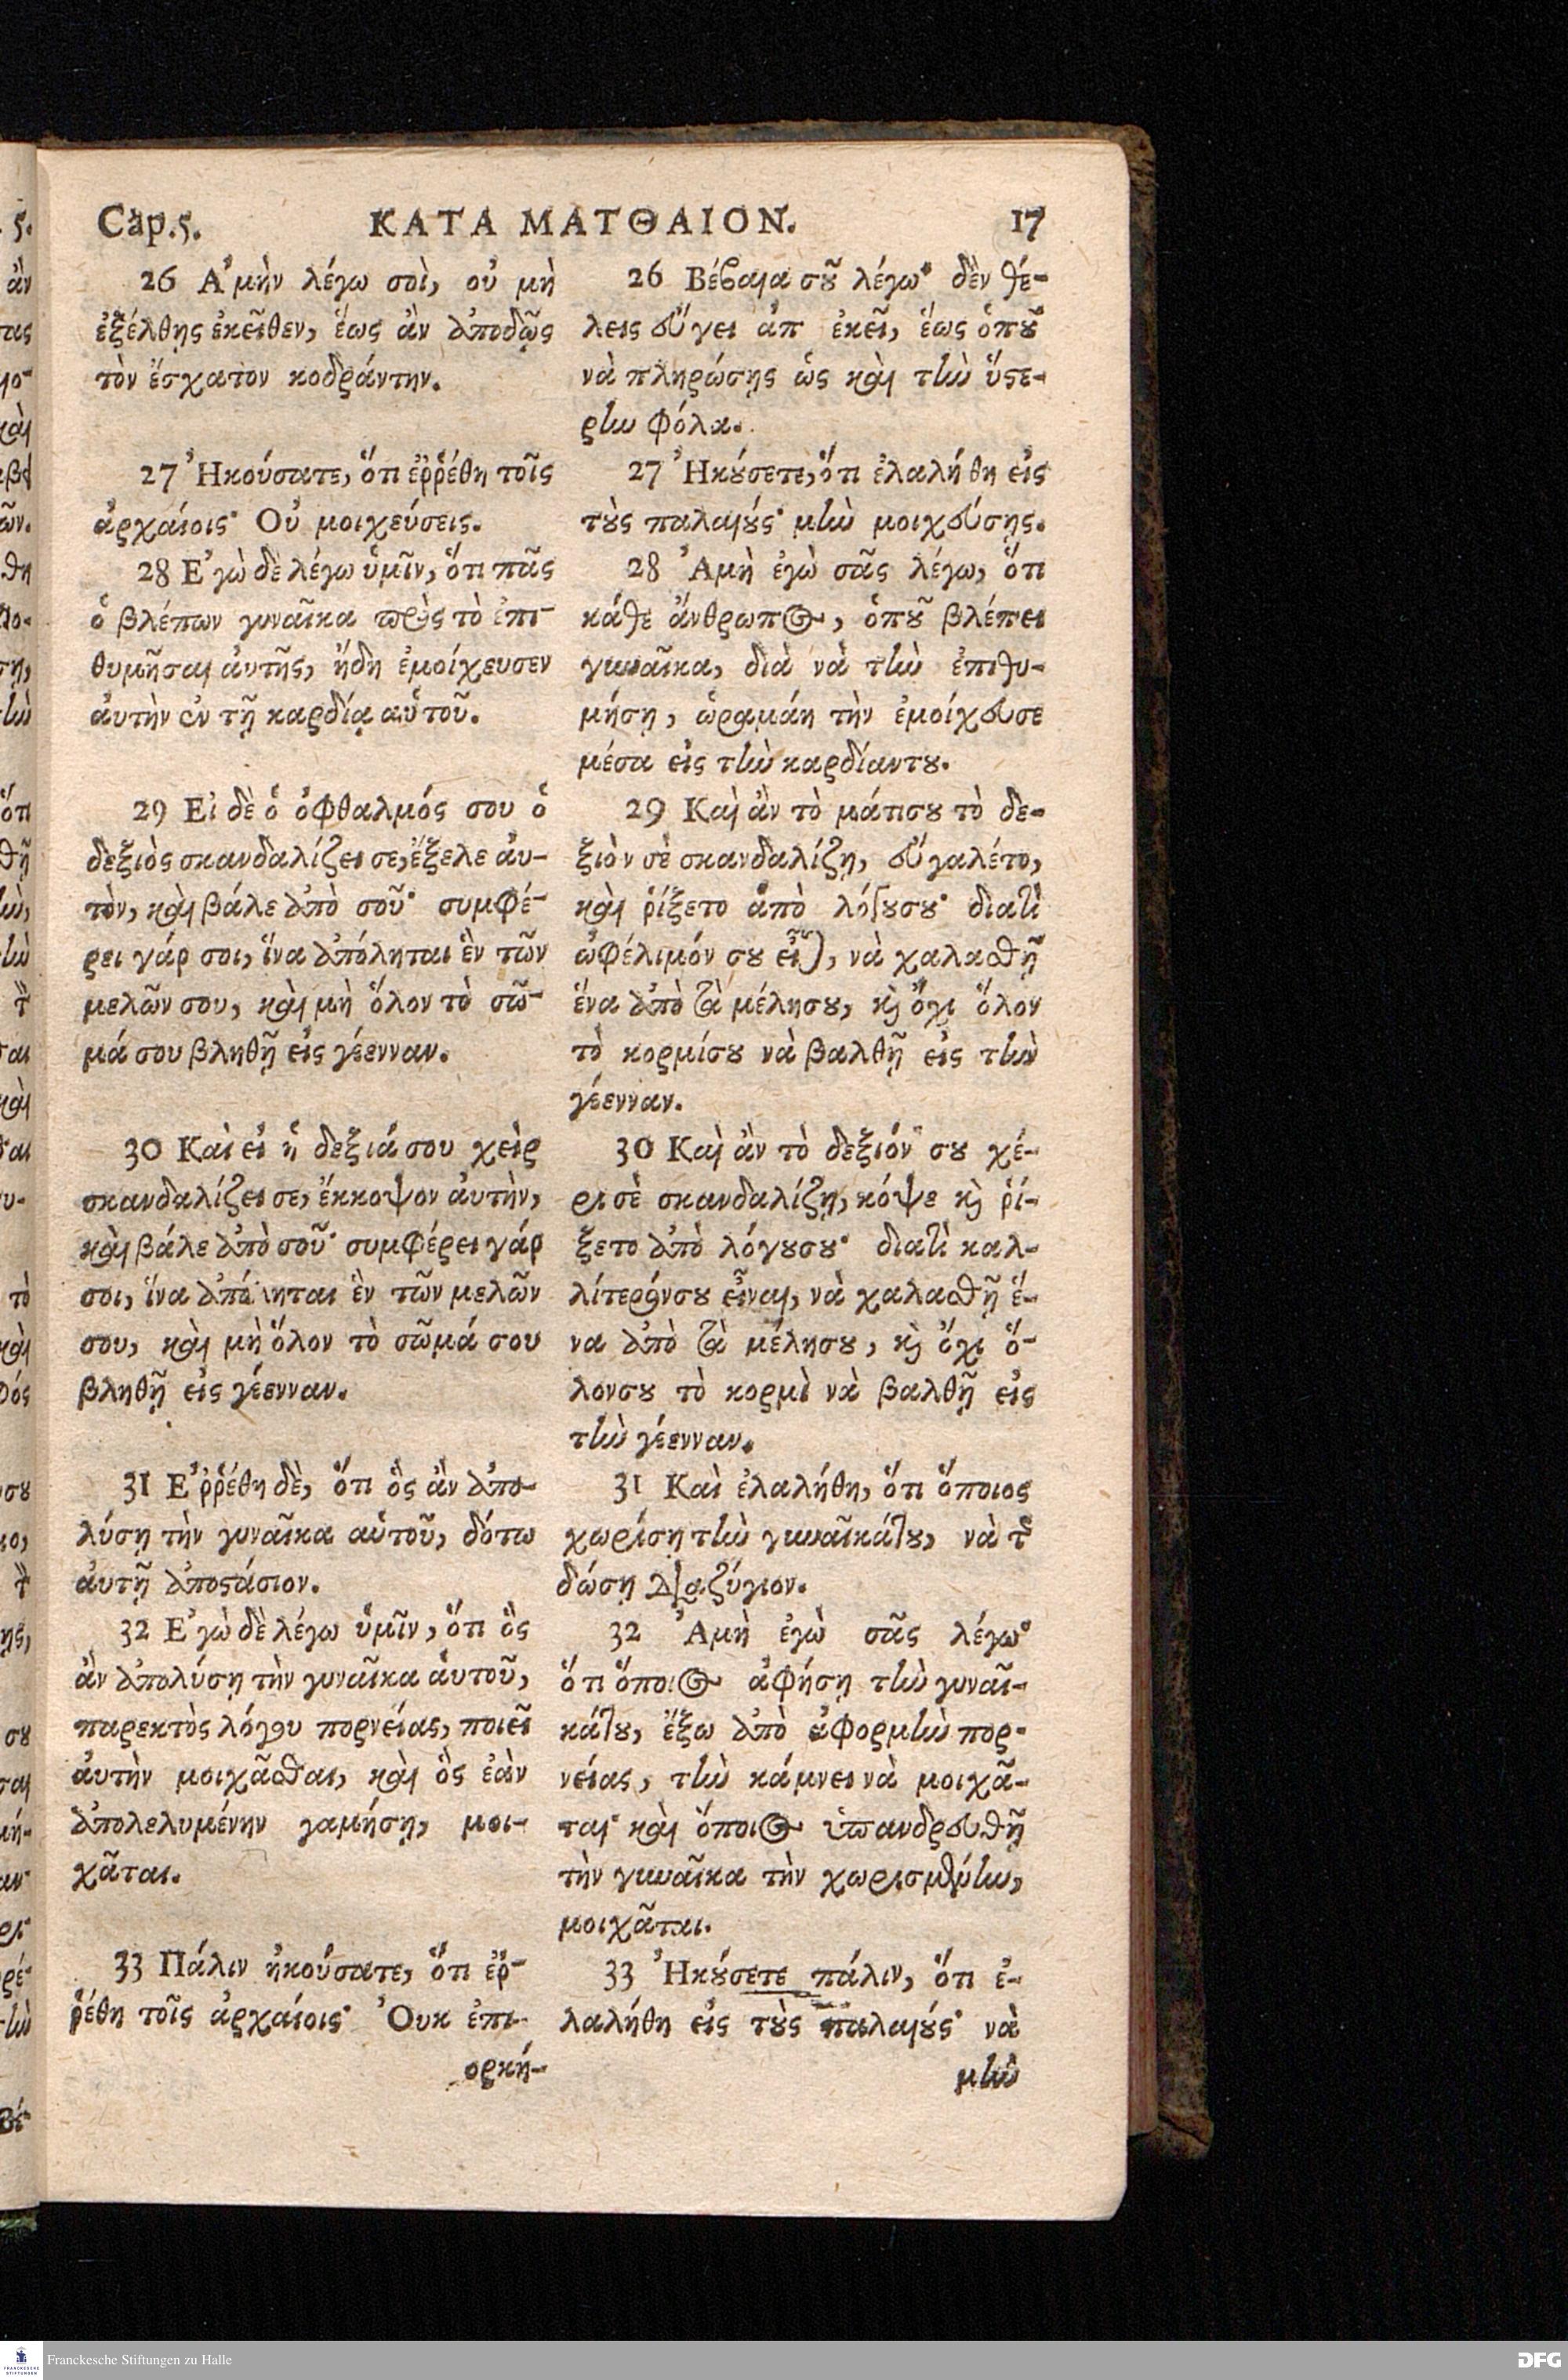 Cap.5. ΚΑΤΑ ΜΑΤΘΑΙΟΝ. 17
26 Α᾿μὴν λέγω σοὶ, οὐ μὴ
ἐξέλθῃς ἐκεῖθεν, ἕως ἂν ἀποδῷς
τὸν ἔσχατον κοδράντην.
27 Ἠκούσατε, ὅτι ἐῤῥέθη τοῖς
ἀρχαίοις· Οὐ μοιχεύσεις.
28 Ε᾿γὼ δὲ λέγω ὑμῖν, ὅτι πᾶς
ὁ βλέπων γυναῖκα πρὸς τὸ ἐπι-
θυμῆσαι ἀυτῆς, ἤδη ἐμοίχευσεν
ἀυτὴν ἐν τῇ καρδίᾳ αὑτοῦ.
29 Εἰ δὲ ὁ ὀφθαλμός σου ὁ
δεξιὸς σκανδαλίζει σε, ἔξελε ἀυ-
τὸν, καὶ βάλε ἀπὸ σοῦ· συμφέ-
ρει γάρ σοι, ἵνα ἀπόληται ἓν τῶν
μελῶν σου, καὶ μὴ ὅλον τὸ σῶ-
μά σου βληθῇ εἰς γέενναν.
30 Καὶ εἰ ἡ δεξιά σου χεὶρ
σκανδαλίζει σε, ἔκκοψον ἀυτὴν,
καὶ βάλε ἀπὸ σοῦ· συμφέρει γάρ
σοι, ἵνα ἀπόληται ἓν τῶν μελῶν
σου, καὶ μὴ ὅλον τὸ σῶμά σου
βληθῇ εἰς γέενναν.
31 Ε᾿ῤῥέθη δὲ, ὅτι ὃς ἂν ἀπο-
λύσῃ τὴν γυναῖκα αὑτοῦ, δότω
ἀυτῇ ἀποϛάσιον.
32 Ε᾿γὼ δὲ λέγω ὑμῖν, ὅτι ὃς
ἂν ἀπολύσῃ τὴν γυναῖκα ἁυτοῦ,
παρεκτὸς λόγου πορνείας, ποιεῖ
ἀυτὴν μοιχᾶσθαι, καὶ ὃς ἐὰν
ἀπολελυμένην γαμήσῃ, μοι-
χᾶται.
33 Πάλιν ἠκούσατε, ὅτι ἐῤ-
ῥέθη τοῖς ἀρχαίοις· Ὀυκ ἐπι-
ορκή-
26 Βέβαια σοῦ λέγω· δὲν θέ-
λεις εὔγει ἀπ ἐκεῖ, ἕως ὁποῦ
νὰ πληρώσῃς ὡς καὶ τὴν ὕϛε-
ρην φόλα.
27 Ἠκούσετε, ὅτι ἐλαλήθη εἰς
τοὺς παλαιούς· μὴν μοιχεύσῃς.
28 Ἀμὴ ἐγὼ σᾶς λέγω, ὅτι
κάθε ἄνθρωπος, ὁποῦ βλέπει
γυναῖκα, διὰ νὰ τὴν ἐπιθυ-
μήσῃ, ὡραμάη τὴν ἐμοίχευσε
μέσα εἰς τὴν καρδίαντου.
29 Καὶ ἂν τὸ μάτισου τὸ δε-
ξιὸν σὲ σκανδαλίζῃ, εὔγαλέτο,
καὶ ῥίξετο ἀπὸ λόγουσου· διατὶ
ὠφέλιμόν σου εἶναι, νὰ χαλασθῇ
ἕνα ἀπὸ τὰ μέλησου, καὶ ὄχι ὅλον
τὸ κορμίσου νὰ βαλθῇ εἰς τὴν
γέενναν.
30 Καὶ ἂν τὸ δεξιόν σου χέ-
ρι σὲ σκανδαλίζῃ, κόψε καὶ ῥί-
ξετο ἀπὸ λόγουσου· διατὶ καλ-
λίτερόνσου εἶναι, νὰ χαλασθῇ ἕ-
να ἀπὸ τὰ μέλησου, καὶ ὄχι ὅ-
λονσου τὸ κορμὶ νὰ βαλθῇ εἰς
τὴν γέενναν.
31 Καὶ ἐλαλήθη, ὅτι ὅποιος
χωρίσῃ τὴν γυναῖκάτου, νὰ τῆς
δώσῃ διαζύγιον.
32 Ἀμὴ ἐγὼ σᾶς λέγω·
ὅτι ὅποιος ἀφήσῃ τὴν γυναῖ-
κάτου, ἔξω ἀπὸ ἀφορμὴν πορ-
νείας, τὴν κάμνει νὰ μοιχᾶ-
ται· καὶ ὅποιος ὑπανδρευθῇ
τὴν γυναῖκα τὴν χωρισμένην,
μοιχᾶται.
33 Ἠκούσετε πάλιν, ὅτι ἐ-
λαλήθη εἰς τοὺς παλαιούς· νὰ
μὴν
Franckesche Stiftungen zu Halle
DFG